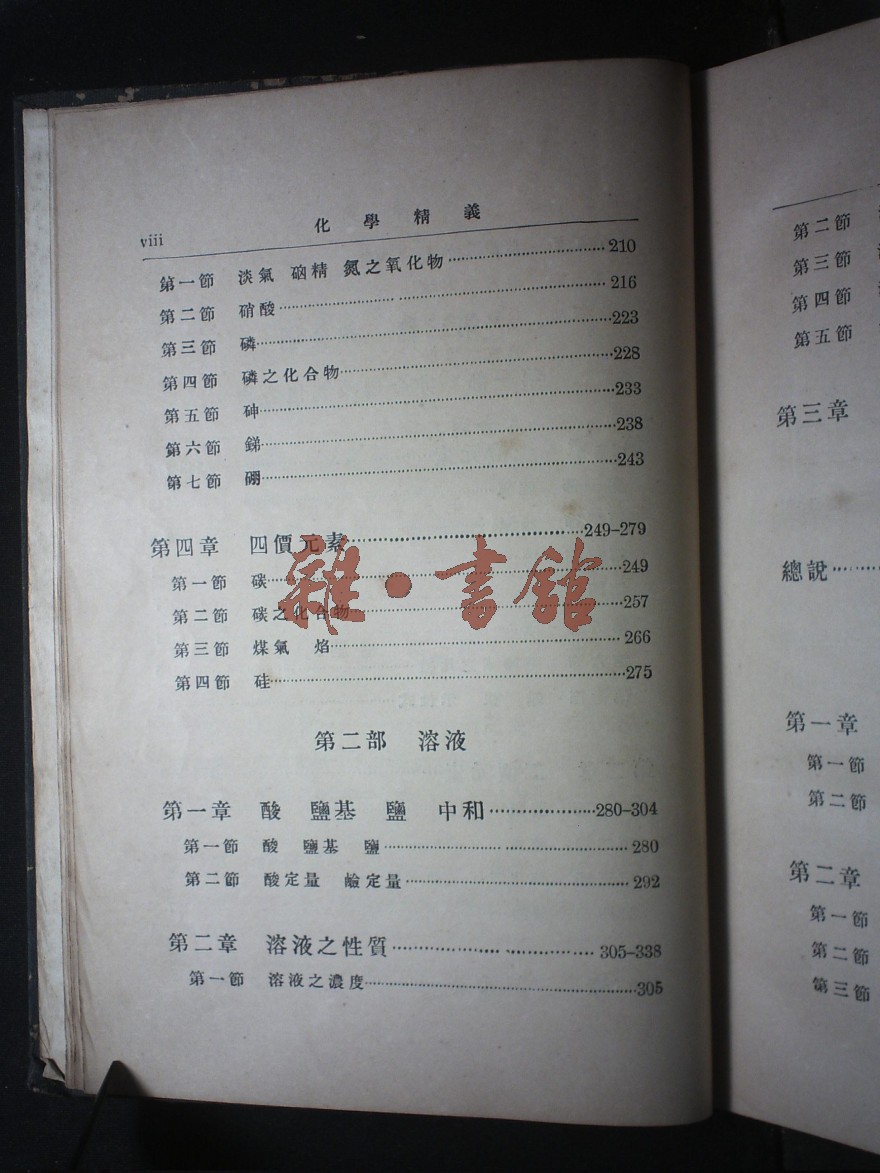 viii 化學精義
第一節 淡氣 硇精 氮之氧化物……210
第二節 硝酸……216
第三節 磷……223
第四節 磷之化合物……228
第五節 砷……233
第六節 銻……238
第七節 硼……243
第四章 四價元素……249–279
第一節 碳……249
第二節 碳之化合物……257
第三節 煤氣 焰……266
第四節 硅……275
第二部 溶液
第一章 酸 鹽基 鹽 中和……280–304
第一節 酸 鹽基 鹽……280
第二節 酸定量 鹼定量……292
第二章 溶液之性質……305–338
第一節 溶液之濃度……305
雜·書館
第二節
第三節
第四節
第五節
第三章
總說……
第一章
第一節
第二節
第二章
第一節
第二節
第三節